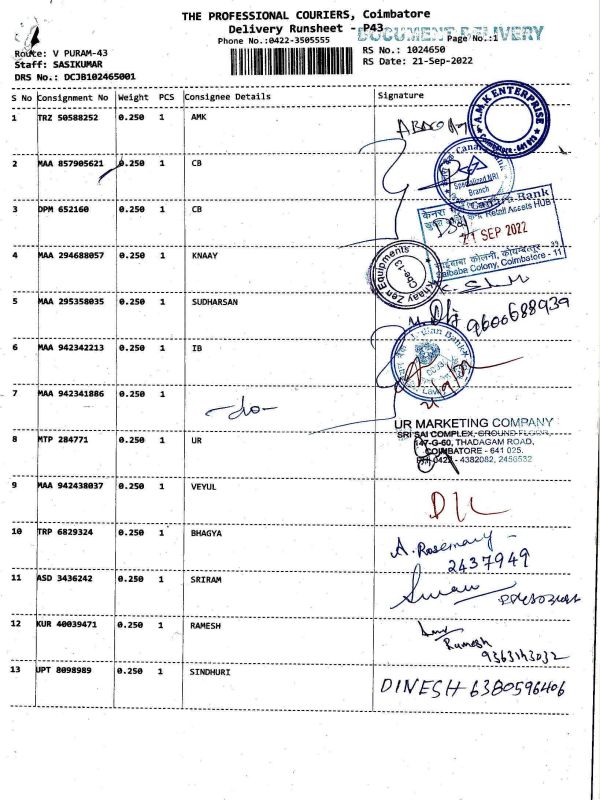 THE PROFESSIONAL COURIERS, Coimbatore
Delivery Runsheet - P43
DOCUMENT DELIVERY
Phone No.:0422-3505555
Page No.:1
Route: V PURAM-43
RS No.: 1024650
Staff: SASIKUMAR
RS Date: 21-Sep-2022
DRS No.: DCJB102465001
S No Consignment No Weight PCS Consignee Details Signature
1 TRZ 50588252 0.250 1 AMK
A.M.K ENTERPRISE
Coimbatore - 641 013
2 MAA 857905621 0.250 1 CB
Canara Bank
Specialized NRI
Branch
3 DPM 652160 0.250 1 CB
केनरा Canara Bank
Retail Assets HUB
21 SEP 2022
साईबाबा कोलनी, कोयम्बत्तूर
Saibaba Colony, Coimbatore - 11
4 MAA 294688057 0.250 1 KNAAY
Knaay Zen Equipments
Cbe-13
5 MAA 295358035 0.250 1 SUDHARSAN
9600688939
6 MAA 942342213 0.250 1 IB
Indian Bank
7 MAA 942341886 0.250 1
-do-
UR MARKETING COMPANY
SRI SAI COMPLEX, GROUND FLOOR,
147-G-60, THADAGAM ROAD,
COIMBATORE - 641 025.
0422 - 4382082, 2456532
8 MTP 284771 0.250 1 UR
9 MAA 942438037 0.250 1 VEYUL
D/L
10 TRP 6829324 0.250 1 BHAGYA
A. Rosemary
2437949
11 ASD 3436242 0.250 1 SRIRAM
12 KUR 40039471 0.250 1 RAMESH
Ramesh
9363143032
13 UPT 8098989 0.250 1 SINDHURI
DINESH 6380596406